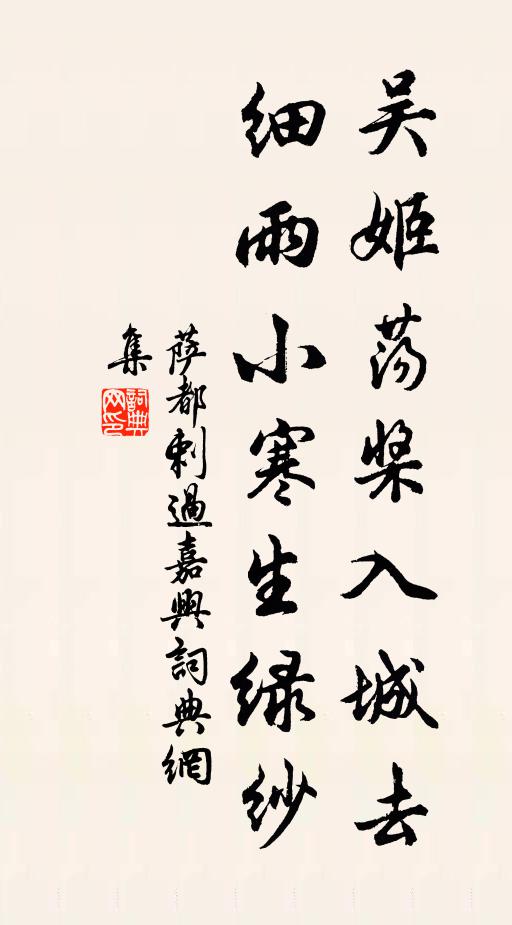 吴姬荡桨入城去
细雨小寒生绿纱
萨都剌過嘉興詞典網
集
詞典
网印